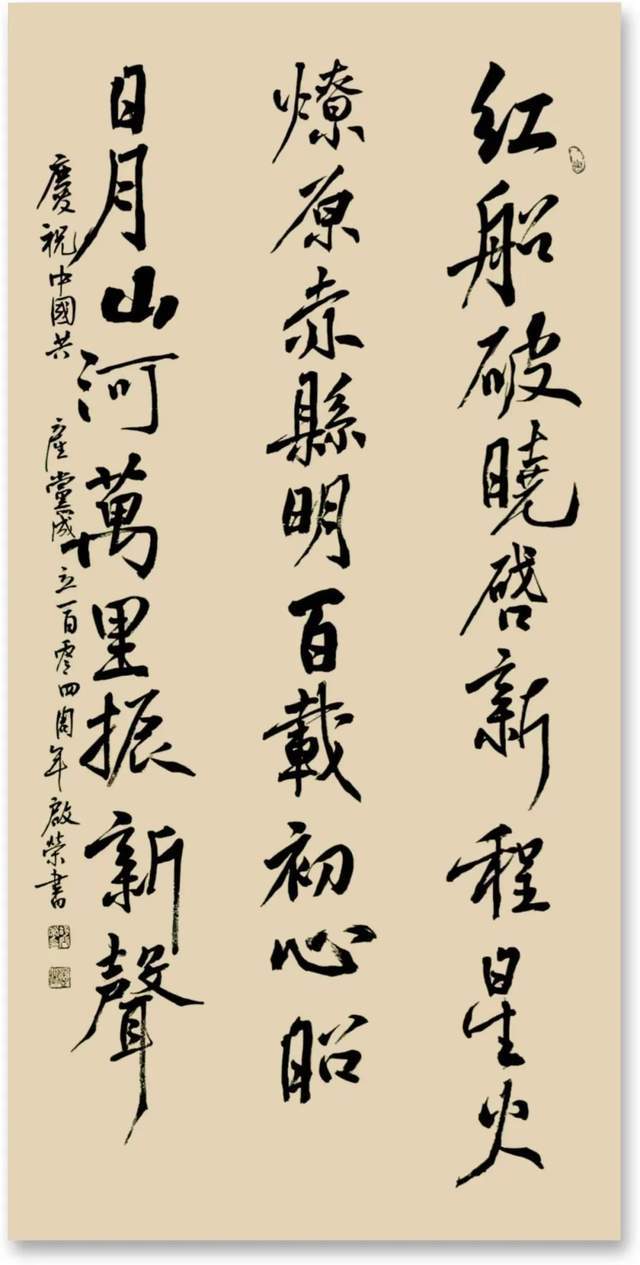 红船破曉啓新程星火
燎原赤縣明百載初心昭
日月山河萬里振新聲
慶祝中國共產黨成立一百零四周年啟榮書